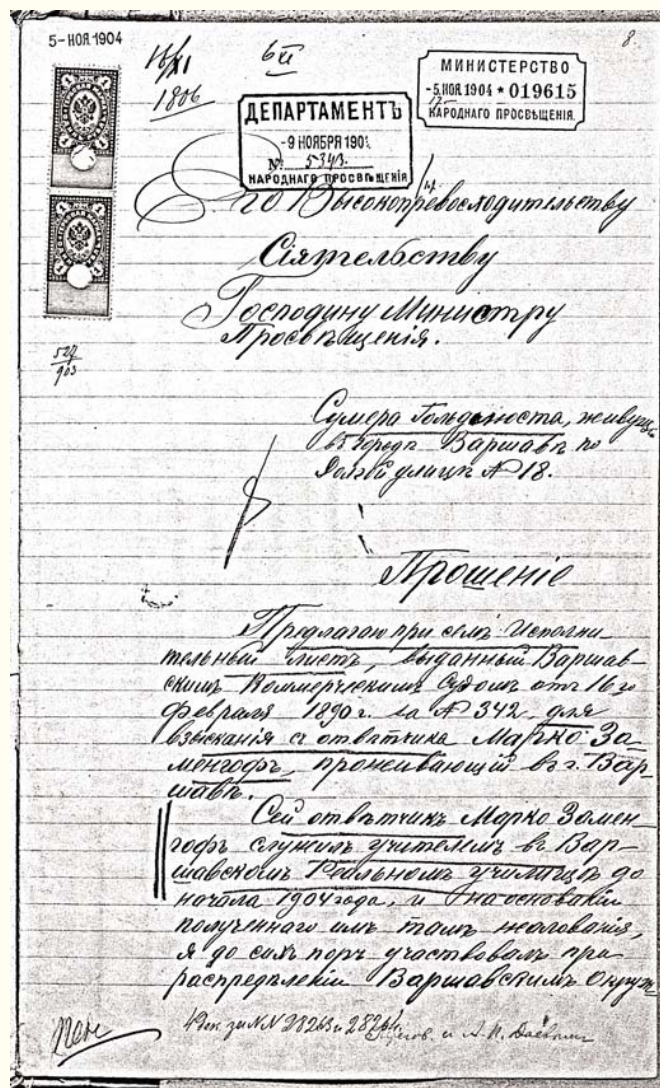 5-НОЯ.1904
8.
18/XI
1806
МИНИСТЕРСТВО
-5.НОЯ.1904 * 019615
НАРОДНАГО ПРОСВѢЩЕНІЯ.
ДЕПАРТАМЕНТЪ
-9 НОЯБРЯ 190
№ 5343.
НАРОДНАГО ПРОСВѢЩЕНІЯ
Его Высокопревосходительству
Сіятельству
Господину Министру
Просвѣщенія.
527
903
Сумера Гольдлюста, живущ
въ городѣ Варшавѣ по
Долгой улицѣ № 18.
Прошеніе
Предлагаю при семъ Исполни-
тельный листъ, выданный Варшав-
скимъ Коммерческимъ Судомъ отъ 16го
Февраля 1890 г. за № 342, для
взысканія съ отвѣтчика Марко За-
менгофъ, проживающій въ г. Вар-
шавѣ.
Сей отвѣтчикъ Марко Замен-
гофъ служилъ учителемъ въ Вар-
шавскомъ Реальномъ училищѣ до
начала 1904 года, и на основаніи
полученнаго имъ тамъ жалованія,
я до сихъ поръ участвовалъ при
распредѣленіи Варшавскимъ Окруж
№№ 28263 и 28264.